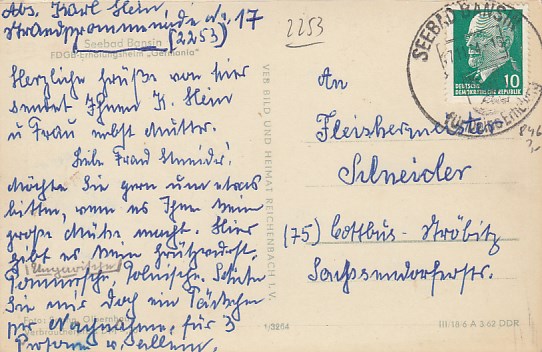 Abs. Karl Klein
Strandprommenade No. 17
(2253)
Seebad Bansin
FDGB-Erholungsheim „Germania"
Herzliche Grüße von hier
sendet Ihnen K. Klein
u Frau nebst Mutter.
Liebe Frau Schneider!
Möchte Sie gern um etwas
bitten, wenn es Ihnen kein
große Mühe macht. Hier
gibt es kein Grützwurst.
Ungarische
Pommersche, Polnische. Schicken
Sie mir doch ein Päckchen
per Nachnahme, für 3
Personen
Foto:
Verbraucher
VEB BILD UND HEIMAT REICHENBACH I. V.
1/3264
2253
SEEBAD BANSIN
DEUTSCHE
DEMOKRATISCHE REPUBLIK
10
An
Fleischermeister
Schneider
(75) Cottbus-Ströbitz
Sachsendorferstr.
III/18/6 A 3 62 DDR